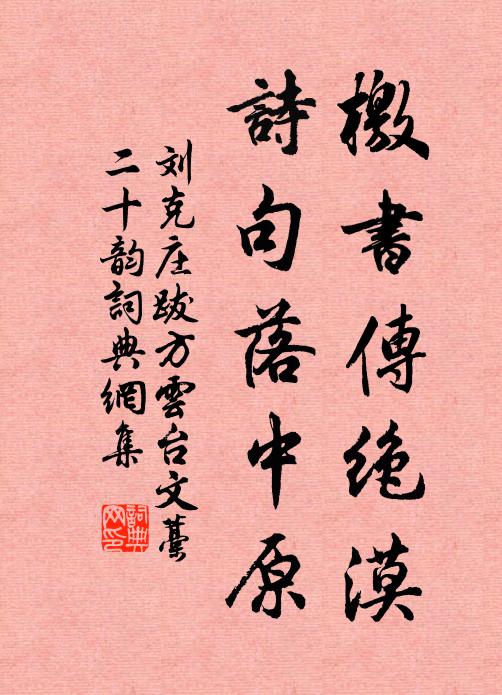 檄書傳絶漠
詩句落中原
刘克庄跋方雲台文藳
二十韵詞典網集
詞典网印